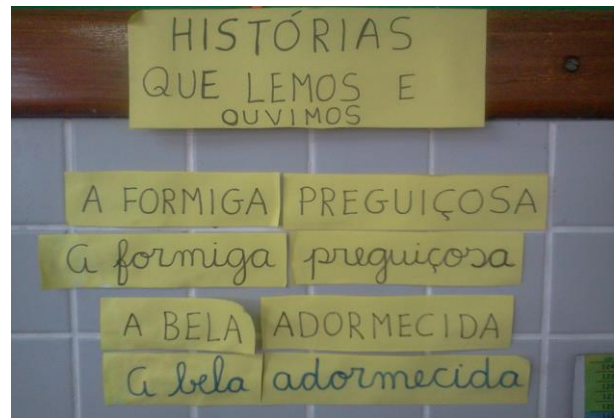 HISTÓRIAS
QUE LEMOS E
OUVIMOS
A FORMIGA PREGUIÇOSA
A formiga preguiçosa
A BELA ADORMECIDA
A bela adormecida